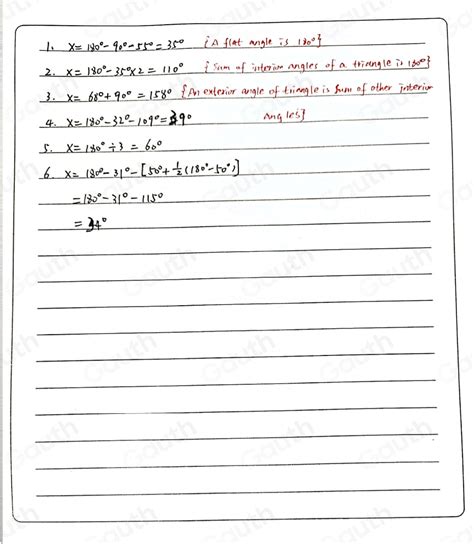 1. x = 180° - 90° - 55° = 35° {A flat angle is 180°}
2. x = 180° - 35° x 2 = 110° {Sum of interior angles of a triangle is 180°}
3. x = 68° + 90° = 158° {An exterior angle of triangle is sum of other interior
angles}
4. x = 180° - 32° - 109° = 39°
5. x = 180° ÷ 3 = 60°
6. x = 180° - 31° - [50° + ½(180° - 50°)]
= 180° - 31° - 115°
= 34°
Gauth